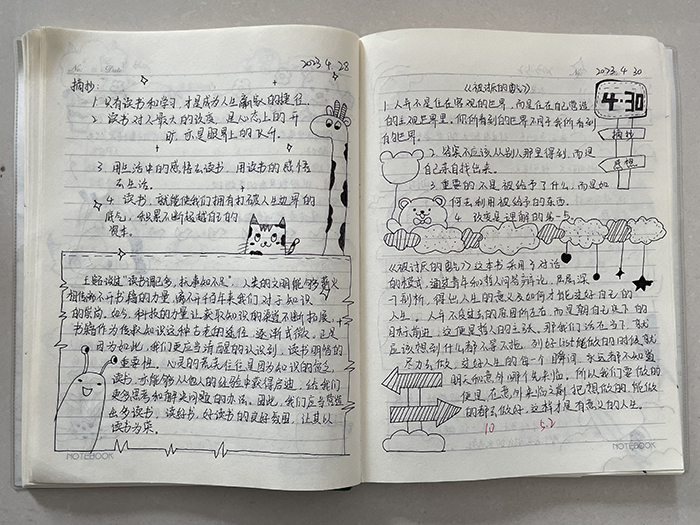 2023.4.28
摘抄:
1. 只有读书和学习,才是成为人生赢家的捷径.
2. 读书对人最大的改变,是心态上的开
旷,亦是眼界上的飞升.
3. 用生活中的感悟去读书,用读书的感悟
去生活。
4. 读书,就能使我们拥有打破人生边界的
底气,积累不断超越自己的
资本.
王勉说过"读书谓已多,抚事知不足",人类的文明能够多
相传离不开书籍的力量,离不开千百年来我们对于知识
的赓尚。如今,科技的力量让获取知识的渠道不断拓展,
书籍作为传承知识这种古老的途径,逐渐式微。正是
因为如此,我们更应当清醒的认识到,读书明悟的
重要性,心灵的荒芜往往是因为知识的匮乏
读书,亦能够从他人的经验中获得启迪,给我们
更多思考和解决问题的办法。因此,我们应当营造
出多读书,读好书,好读书的良好氛围,让其以
读书为荣。
NOTEBOOK
2023.4.30
《被讨厌的勇气》
4:30
摘抄
感想
1. 人并不是住在客观的世界,而是住在自己营造
的主观世界里。你所看到的世界不同于我所看到
的世界.
2. 答案不应该从别人那里得到,而是
自己亲自找出来。
3 重要的不是被给予了什么,而是如
何去利用被给予的东西.
4. 认真是理解的第一步
《被讨厌的勇气》这本书采用了对话
的模式,通过青年和哲人问答辩论,层层深
刻剖析,得出人生的意义及如何才能过好自己的
人生。人并不受过去的原因所左右,而是朝自己定下的
目标前进,这便是哲人的主张。那我们活在当下,就
应该想到什么都不管不拖,列好List能做的时候就
尽力去做,过好人生的每一个瞬间,永远都不知道
明天和意外哪个先来临。所以我们要做的
便是在意外来临之前把想做的,能做
的都去做好,这样才是有意义的人生。
10
5.2
NOTEBOOK